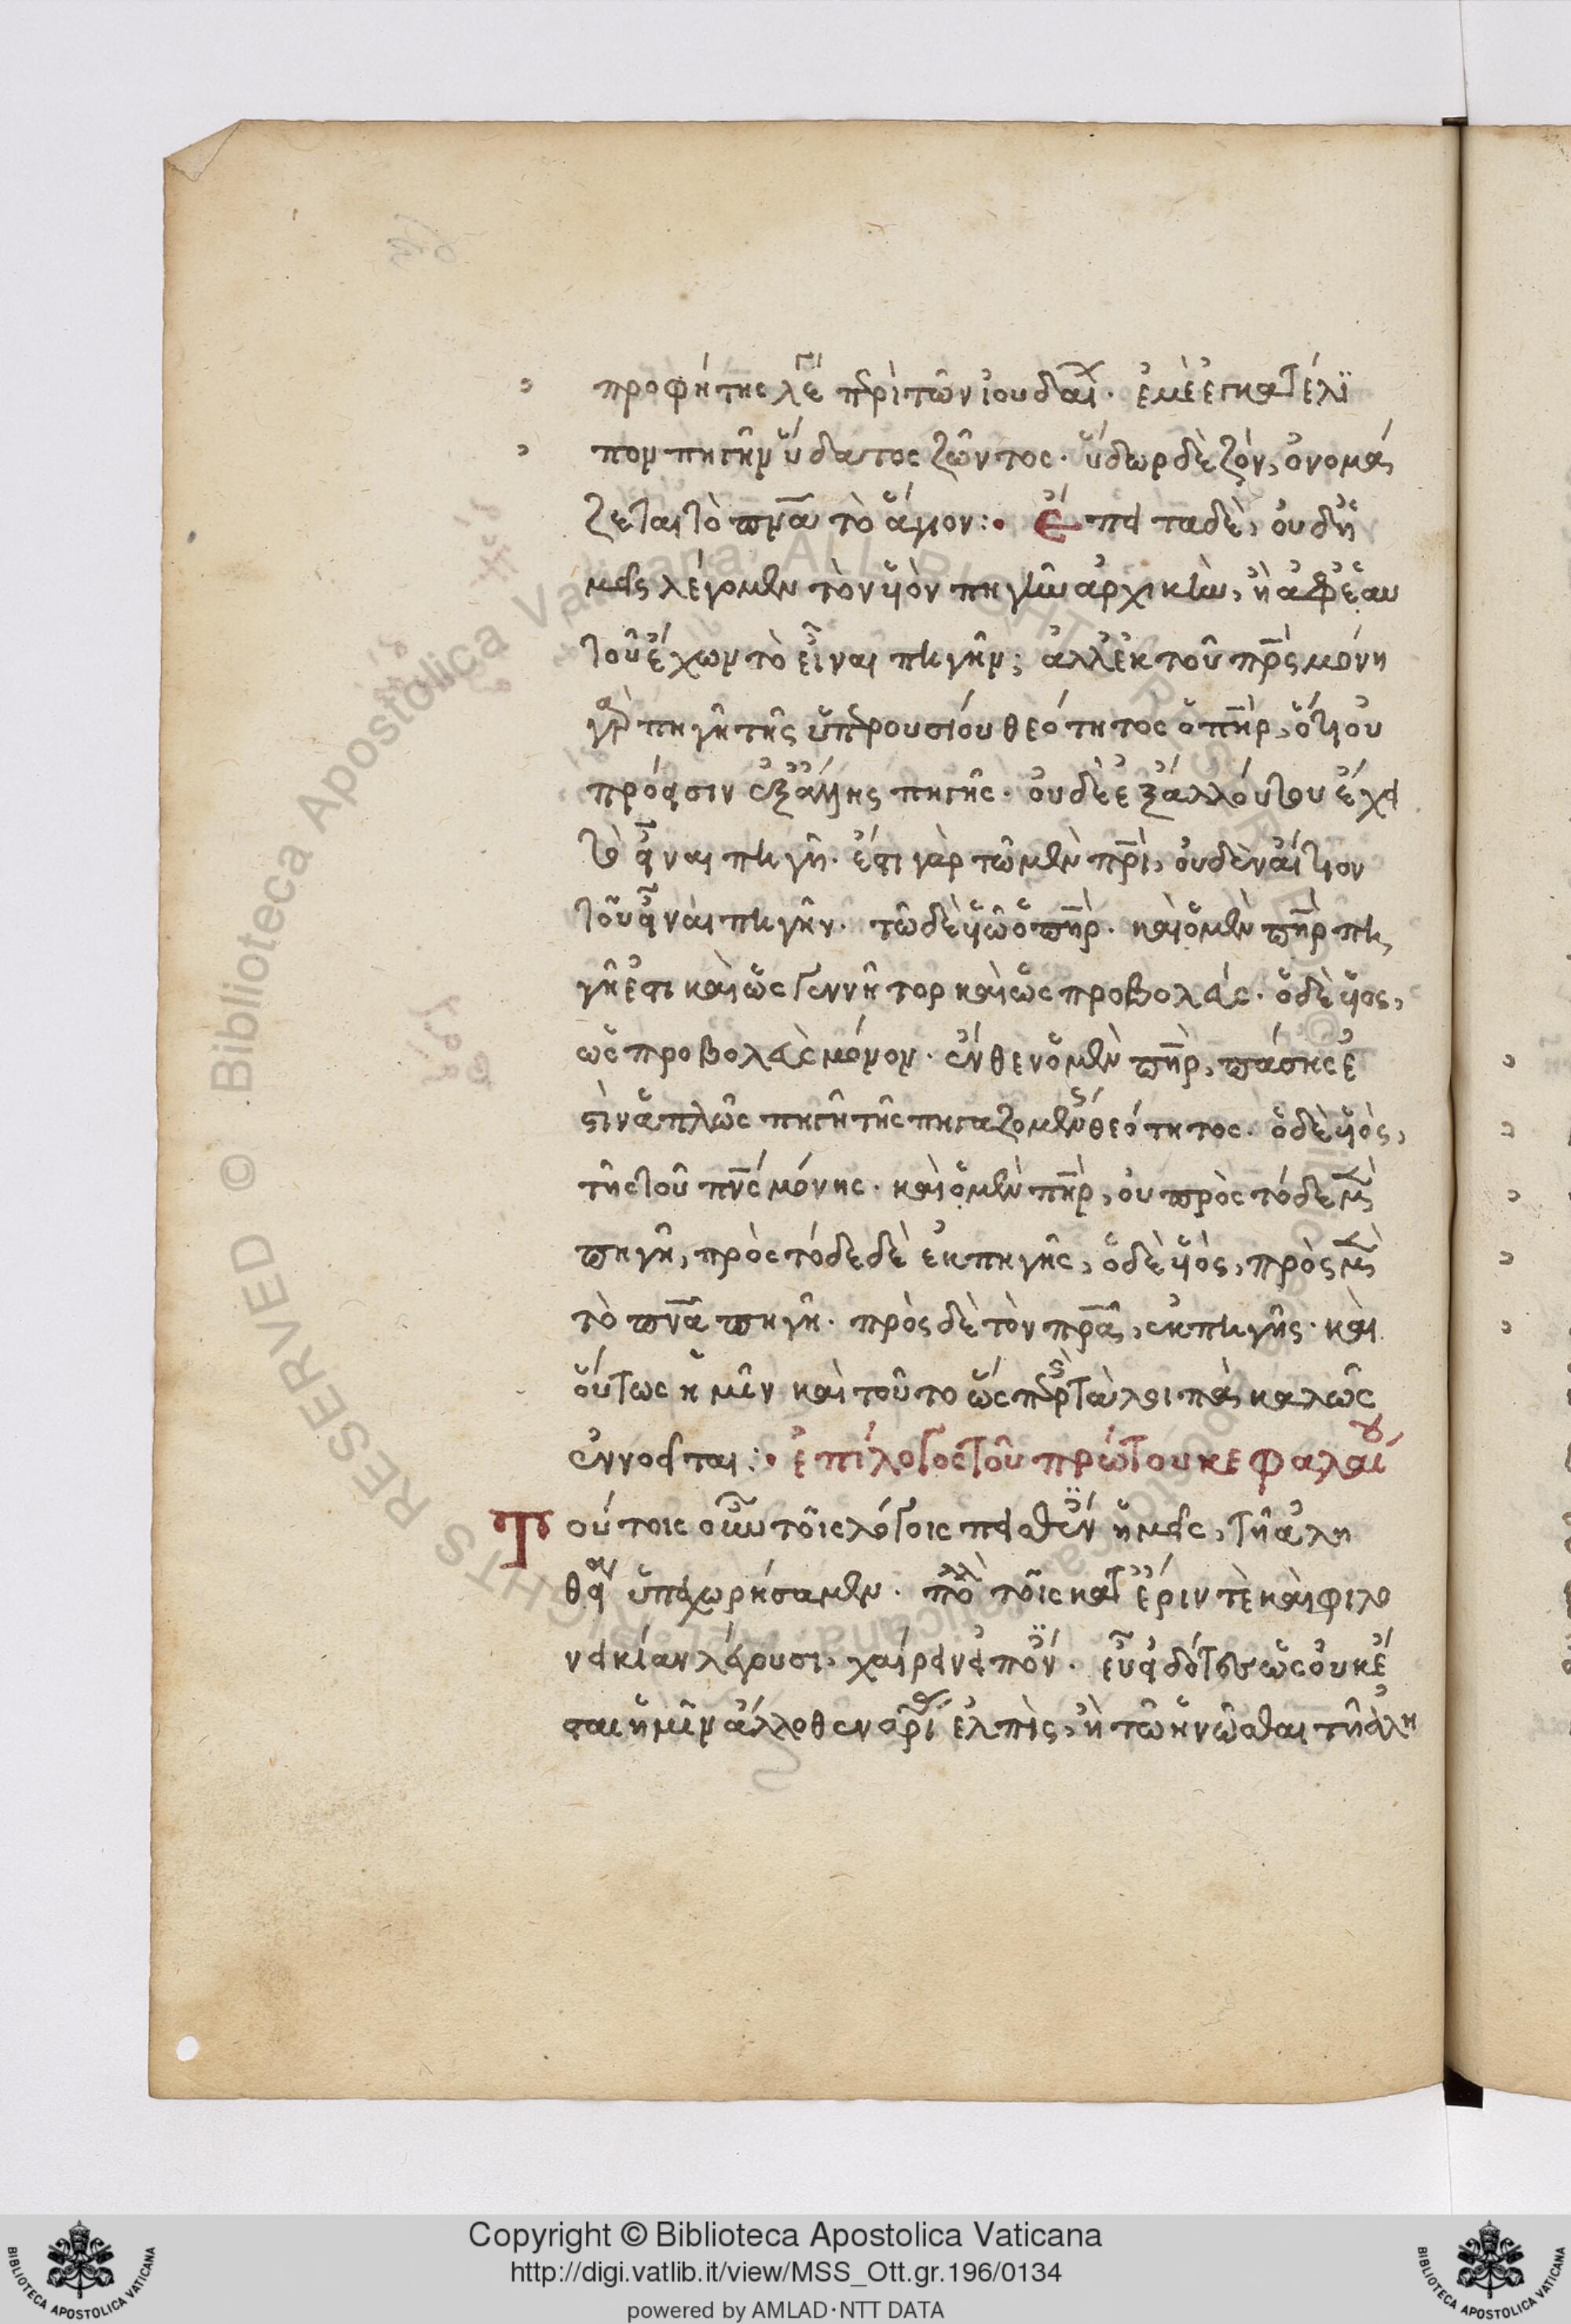 προφήτης λέ πρὶ τῶν ἰουδαί· ἐμὲ ἐγκατέλι
πον πηγὴν ὕδατος ζῶντος· ὕδωρ δὲ ζὸν, ὀνομά
ζεται τὸ πνα τὸ ἅγιον:· Ἔπειτα δὲ, οὐδὲ ἡ
μεῖς λέγομεν τὸν υἱὸν πηγὴν ἀρχικὴν, ἢ ἀφ ἑαυ
τοῦ ἔχων τὸ εἶναι πηγήν; ἀλλ ἐκ τοῦ πρς μόνη
γὰρ πηγὴ τῆς ὑπερουσίου θεότητος ὁ πηρ, ὅτι οὐ
πρόεισιν ἐξ ἄλλης πηγῆς· οὐδὲ ἐξ ἄλλου του ἔχει
τὸ εἶναι πηγή· ἔστι γὰρ τῶ μὲν πρὶ, οὐδὲν αἴτιον
τοῦ εἶναι πηγήν· τῶ δὲ υἱῶ ὁ πηρ· καὶ ὁ μὲν πηρ πη
γή ἐστι καὶ ὡς γεννήτορ καὶ ὡς προβολεύς· ὁ δὲ υἱος,
ὡς προβολεὺς μόνον· ἔνθεν ὁ μὲν πηρ, πάσης ἐ
στὶν ἁπλῶς πηγὴ τῆς πηγαζομένης θεότητος· ὁ δὲ υἱὸς,
τῆς τοῦ πνς μόνης· καὶ ὁ μὲν πηρ, οὐ πρὸς τόδε μὲν
πηγὴ, πρὸς τόδε δὲ ἐκ πηγῆς, ὁ δὲ υἱὸς, πρὸς μὲν
τὸ πνα πηγή· πρὸς δὲ τὸν πρα, ἐκ πηγῆς· καὶ
οὕτως ἡμῖν καὶ τοῦτο ὥσπερ τὰ λοιπὰ καλῶς
ἐννοεῖται:· ἐπίλογος τοῦ πρώτου κεφαλαίου
Τούτοις οὖν τοῖς λόγοις πεισθέν ἡμεῖς, τῆ ἀλη
θεία ὑπεχωρήσαμεν· πολλὰ τοῖς κατ ἔριν τὲ καὶ φιλο
νεικίαν λέγουσι, χαίρειν εἰπόν· εὖ εἰδότες ὡς οὐκ ἔ
σται ἡμῖν ἄλλοθεν σρί ἐλπὶς, ἢ τῶ ἡνῶσθαι τῆ ἀλη
Copyright © Biblioteca Apostolica Vaticana
http://digi.vatlib.it/view/MSS_Ott.gr.196/0134
powered by AMLAD·NTT DATA
BIBLIOTECA APOSTOLICA VATICANA
BIBLIOTECA APOSTOLICA VATICANA